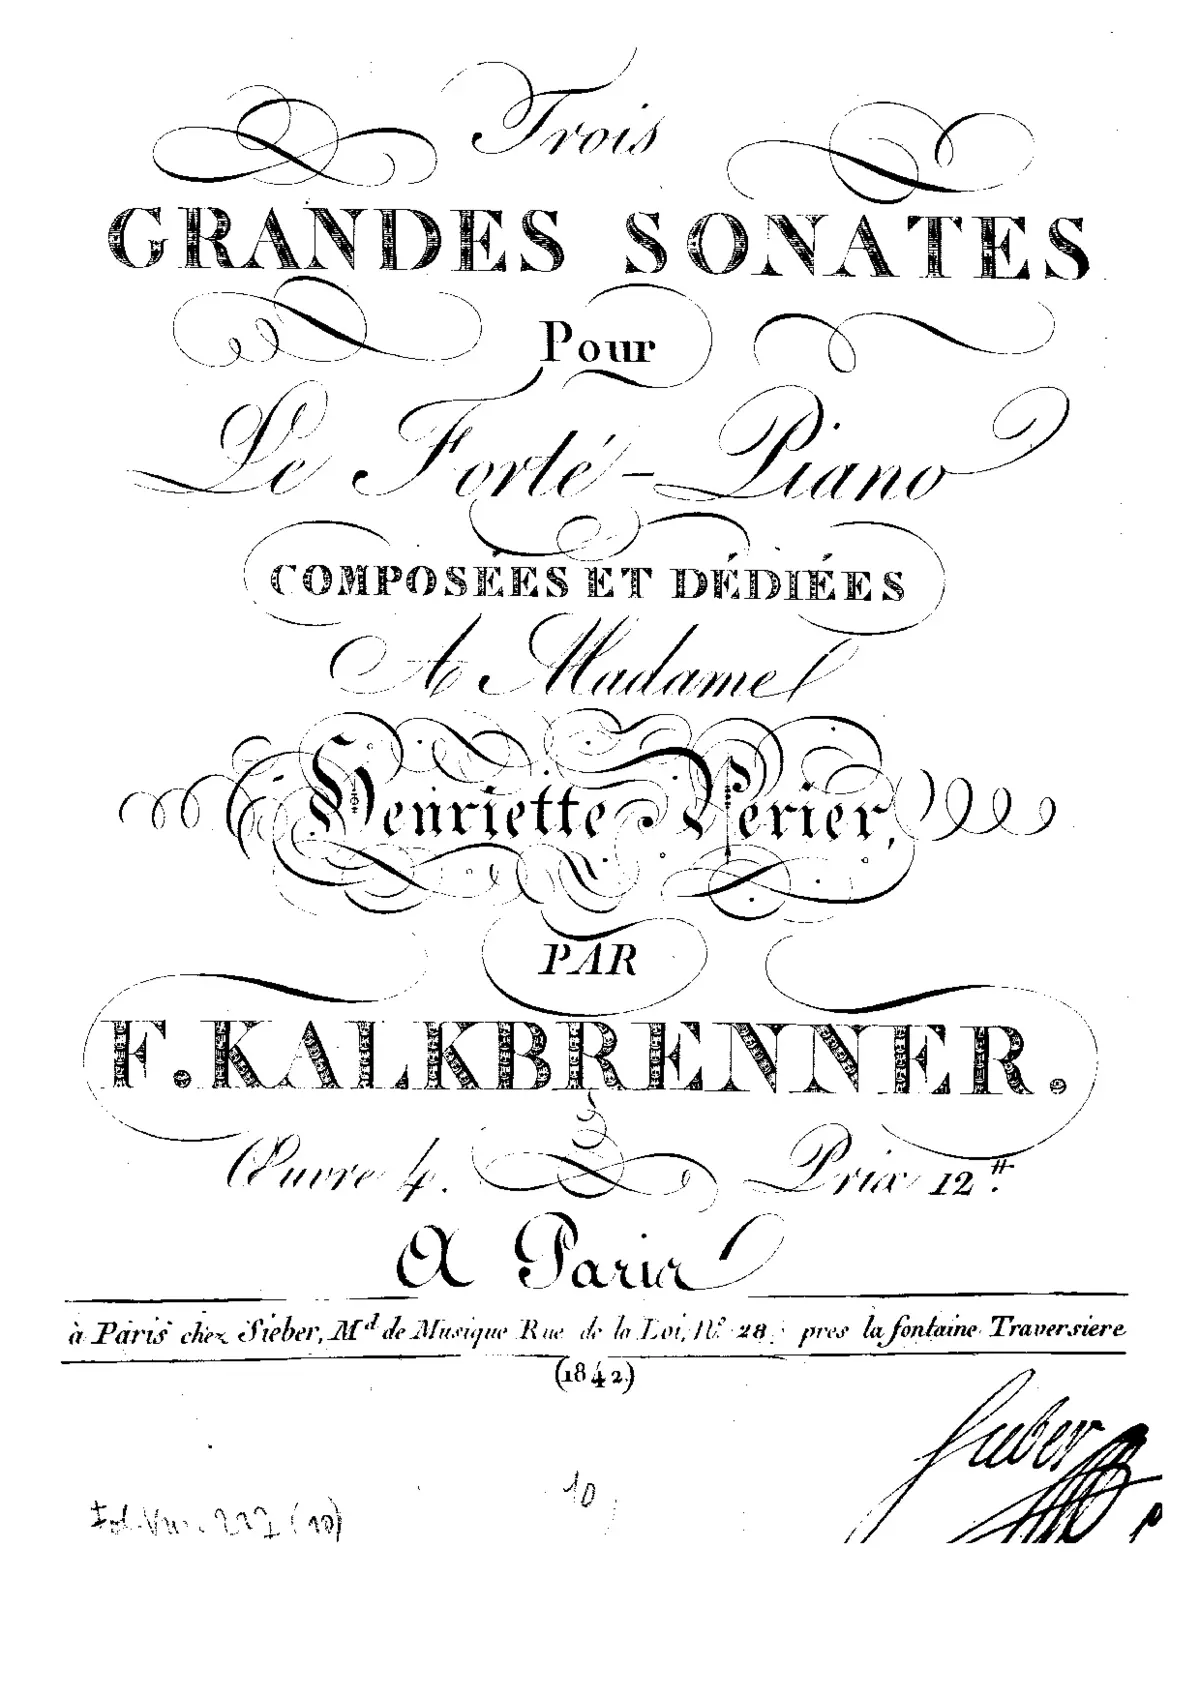 Trois
GRANDES SONATES
Pour
Le Forté-Piano
COMPOSÉES ET DÉDIÉES
A Madame
Henriette Perier,
PAR
F. KALKBRENNER.
Œuvre 4. Prix 12.tt
A Paris
à Paris chez Sieber, Md de Musique Rue de la Loi, No. 28, pres la fontaine Traversiere
(1842.)
10
(10)